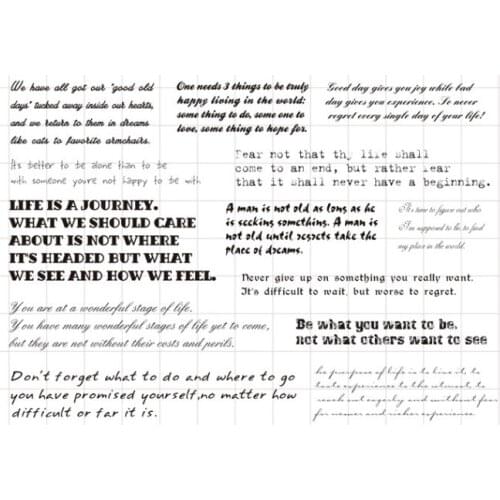 We have all got our "good old
days" tucked away inside our hearts,
and we return to them in dreams
like cats to favorite armchairs.
One needs 3 things to be truly
happy living in the world:
some thing to do, some one to
love, some thing to hope for.
Good day gives you joy while bad
day gives you experience. So never
regret every single day of your life!
Its better to be alone than to be
with someone you're not happy to be with
Fear not that thy life shall
come to an end, but rather fear
that it shall never have a beginning.
LIFE IS A JOURNEY.
WHAT WE SHOULD CARE
ABOUT IS NOT WHERE
IT'S HEADED BUT WHAT
WE SEE AND HOW WE FEEL.
A man is not old as long as he
is seeking something. A man is
not old until regrets take the
place of dreams.
It's time to figure out who
I'm supposed to be, to find
my place in the world.
Never give up on something you really want.
It's difficult to wait, but worse to regret.
You are at a wonderful stage of life.
You have many wonderful stages of life yet to come,
but they are not without their costs and perils.
Be what you want to be,
not what others want to see
Don't forget what to do and where to go
you have promised yourself,no matter how
difficult or far it is.
he purpose of life is to live it, to
taste experience to the utmost, to
reach out eagerly and without fear
for newer and richer experience.